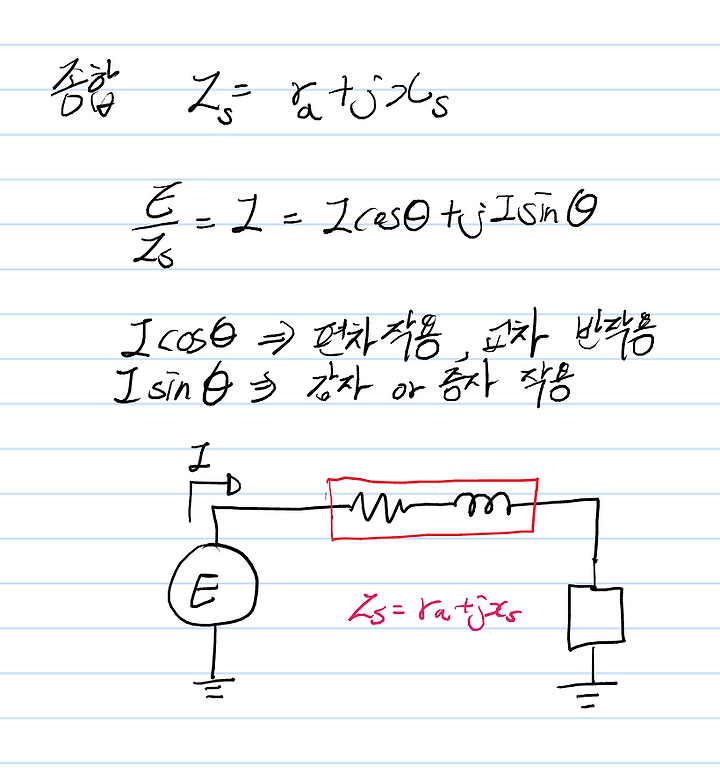 종합 Z_s = r_a + jx_s
E/Z_s = I = I cosθ + j I sinθ
I cosθ ⇒ 편차작용, 교차 반작용
I sinθ ⇒ 감자 or 증자 작용
I
E
Z_s = r_a + jx_s